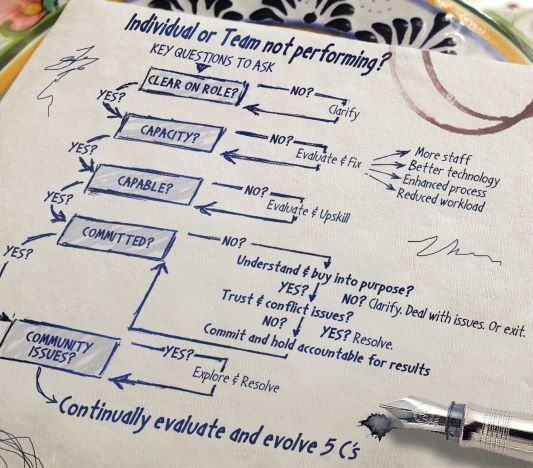 Individual or Team not performing?
KEY QUESTIONS TO ASK
CLEAR ON ROLE?
NO?
Clarify
YES?
CAPACITY?
NO?
Evaluate & Fix
More staff
Better technology
Enhanced process
Reduced workload
YES?
CAPABLE?
NO?
Evaluate & Upskill
YES?
COMMITTED?
NO?
Understand & buy into purpose?
YES?
NO? Clarify. Deal with issues. Or exit.
Trust & conflict issues?
NO?
YES? Resolve.
Commit and hold accountable for results
YES?
COMMUNITY ISSUES?
YES?
Explore & Resolve
Continually evaluate and evolve 5 C's